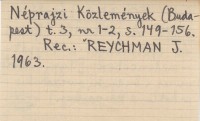 Néprajzi Közlemények (Buda-
pest) t. 3, nr 1-2, s. 149-156.
Rec.: REYCHMAN J.
1963.